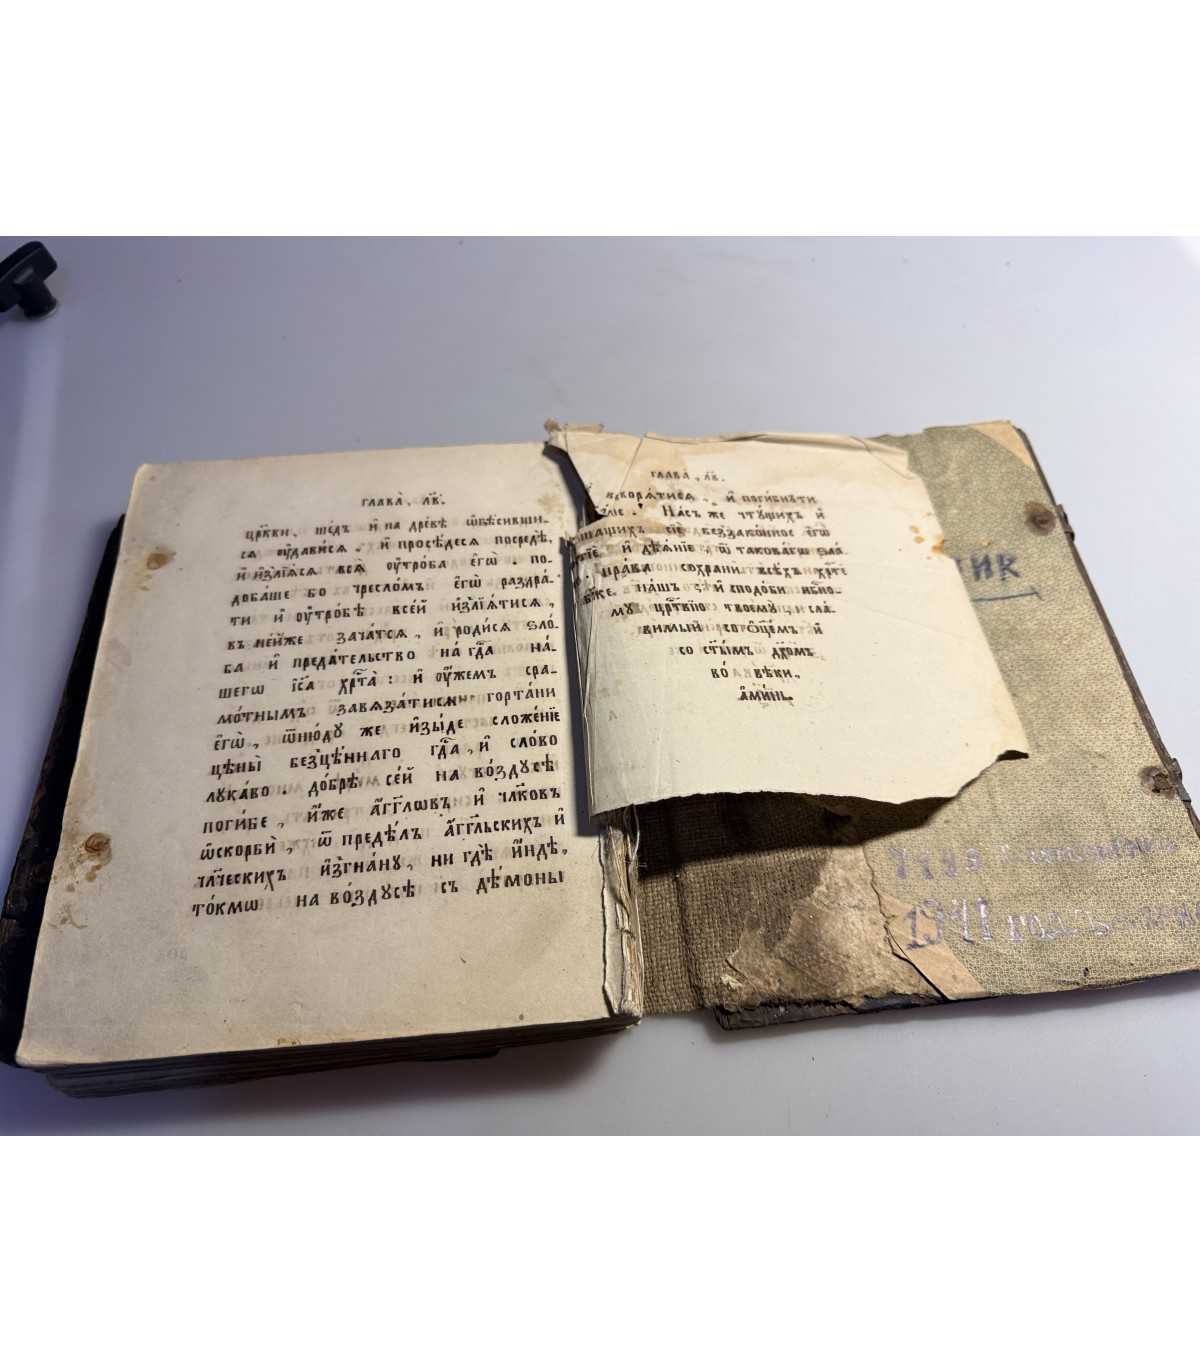 глава̀, л҃в.
цр҃кви, шедъ и҆ на дре́вѣ ѡ҆бѣ́сивши-
ся ᲂу҆дави́ся, и҆ просѣ́деся посредѣ̀,
и҆ и҆злїѧ́ся вся̀ ᲂу҆тро́ба є҆гѡ̀. по-
доба́ше бо чресло́мъ є҆гѡ̀ раздра́-
ти и҆ ᲂу҆тро́бѣ все́й и҆злїѧ́тися,
въ не́йже зача́тся, и҆ роди́ся ѕло́-
ба и҆ преда́тельство на гд҇а на́-
шегѡ і҆и҃са хр҇та̀: и҆ ᲂу҆́жемъ сра-
мо́тнымъ завяза́тися гортани
є҆гѡ̀, ѿню́ду же и҆зы́де сложе́нїе
цѣны̀ безцѣ́ннаго гд҇а, и҆ сло́во
лука́во. до́брѣ се́й на во́здусѣ
поги́бе, и҆́же а҆́гг҃лѡвъ и҆ чл҃кѡвъ
ѡ҆скорбѝ, ѿ предѣ́лъ а҆́гг҃льскихъ и҆
чл҃ческихъ и҆згна́ну, ни гдѣ̀ и҆́ндѣ,
то́кмѡ на во́здусѣ съ де́моны
глава̀, л҃в.
поги́бнути
На́съ же чту́щихъ и҆
сїѐ беззако́нное є҆гѡ̀
и҆ дѣѧ́нїе ѿ такова́гѡ ѕла́-
нра́ва сохранѝ всѣ́хъ хр҇тѐ
бж҃е на́шъ, и҆ сподо́би нб҇но-
му ца҃рствїю твоему̀ сла́-
вимый со ѻ҆ц҃е́мъ и҆
со ст҃ы́мъ дх҃омъ
во вѣ́ки.
а҆ми́нь.
1941